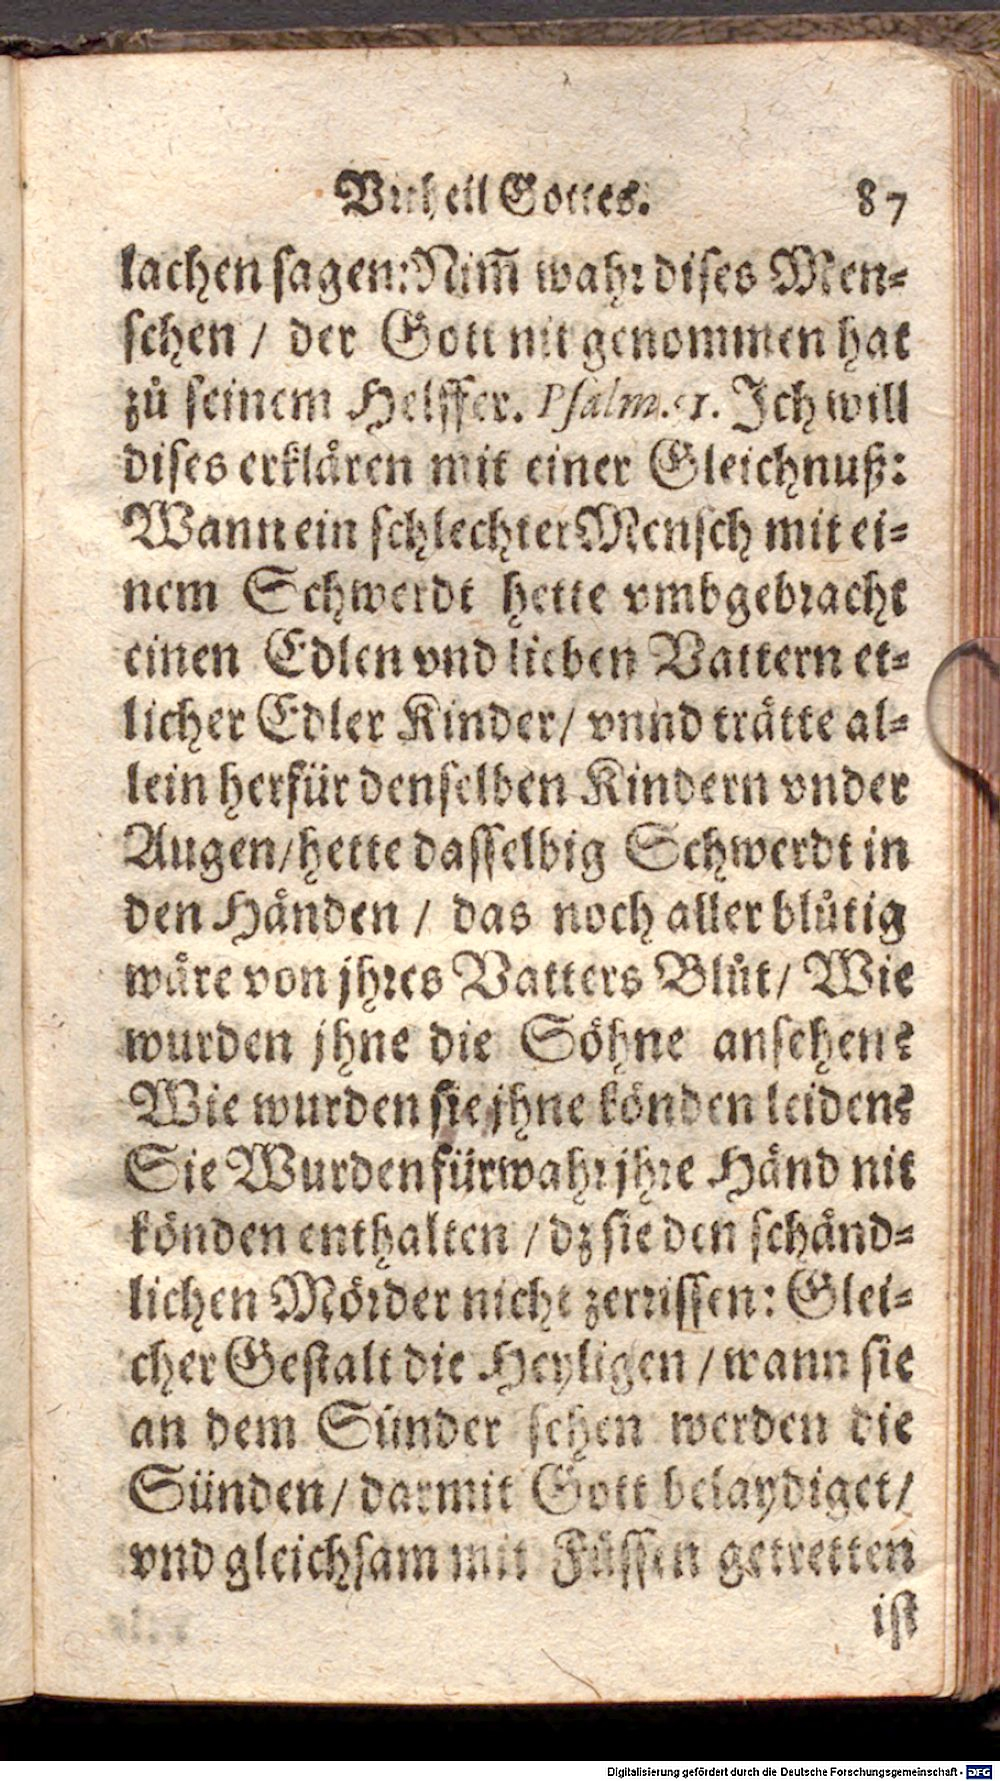 Vrtheil Gottes. 87
lachen sagen: Nim̄ wahr dises Men-
schen / der Gott nit genommen hat
zů seinem Helffer. Psalm. 51. Ich will
dises erklären mit einer Gleichnuß:
Wann ein schlechter Mensch mit ei-
nem Schwerdt hette vmbgebracht
einen Edlen vnd lieben Vattern et-
licher Edler Kinder / vnnd trätte al-
lein herfür denselben Kindern vnder
Augen / hette dasselbig Schwerdt in
den Händen / das noch aller blůtig
wäre von jhres Vatters Blůt / Wie
wurden jhne die Söhne ansehen?
Wie wurden sie jhne könden leiden?
Sie Wurden fürwahr jhre Händ nit
könden enthalten / dz sie den schänd-
lichen Mörder nicht zerrissen: Glei-
cher Gestalt die Heyligen / wann sie
an dem Sünder sehen werden die
Sünden / darmit Gott belaydiget /
vnd gleichsam mit Füssen getretten
ist
Digitalisierung gefördert durch die Deutsche Forschungsgemeinschaft - DFG